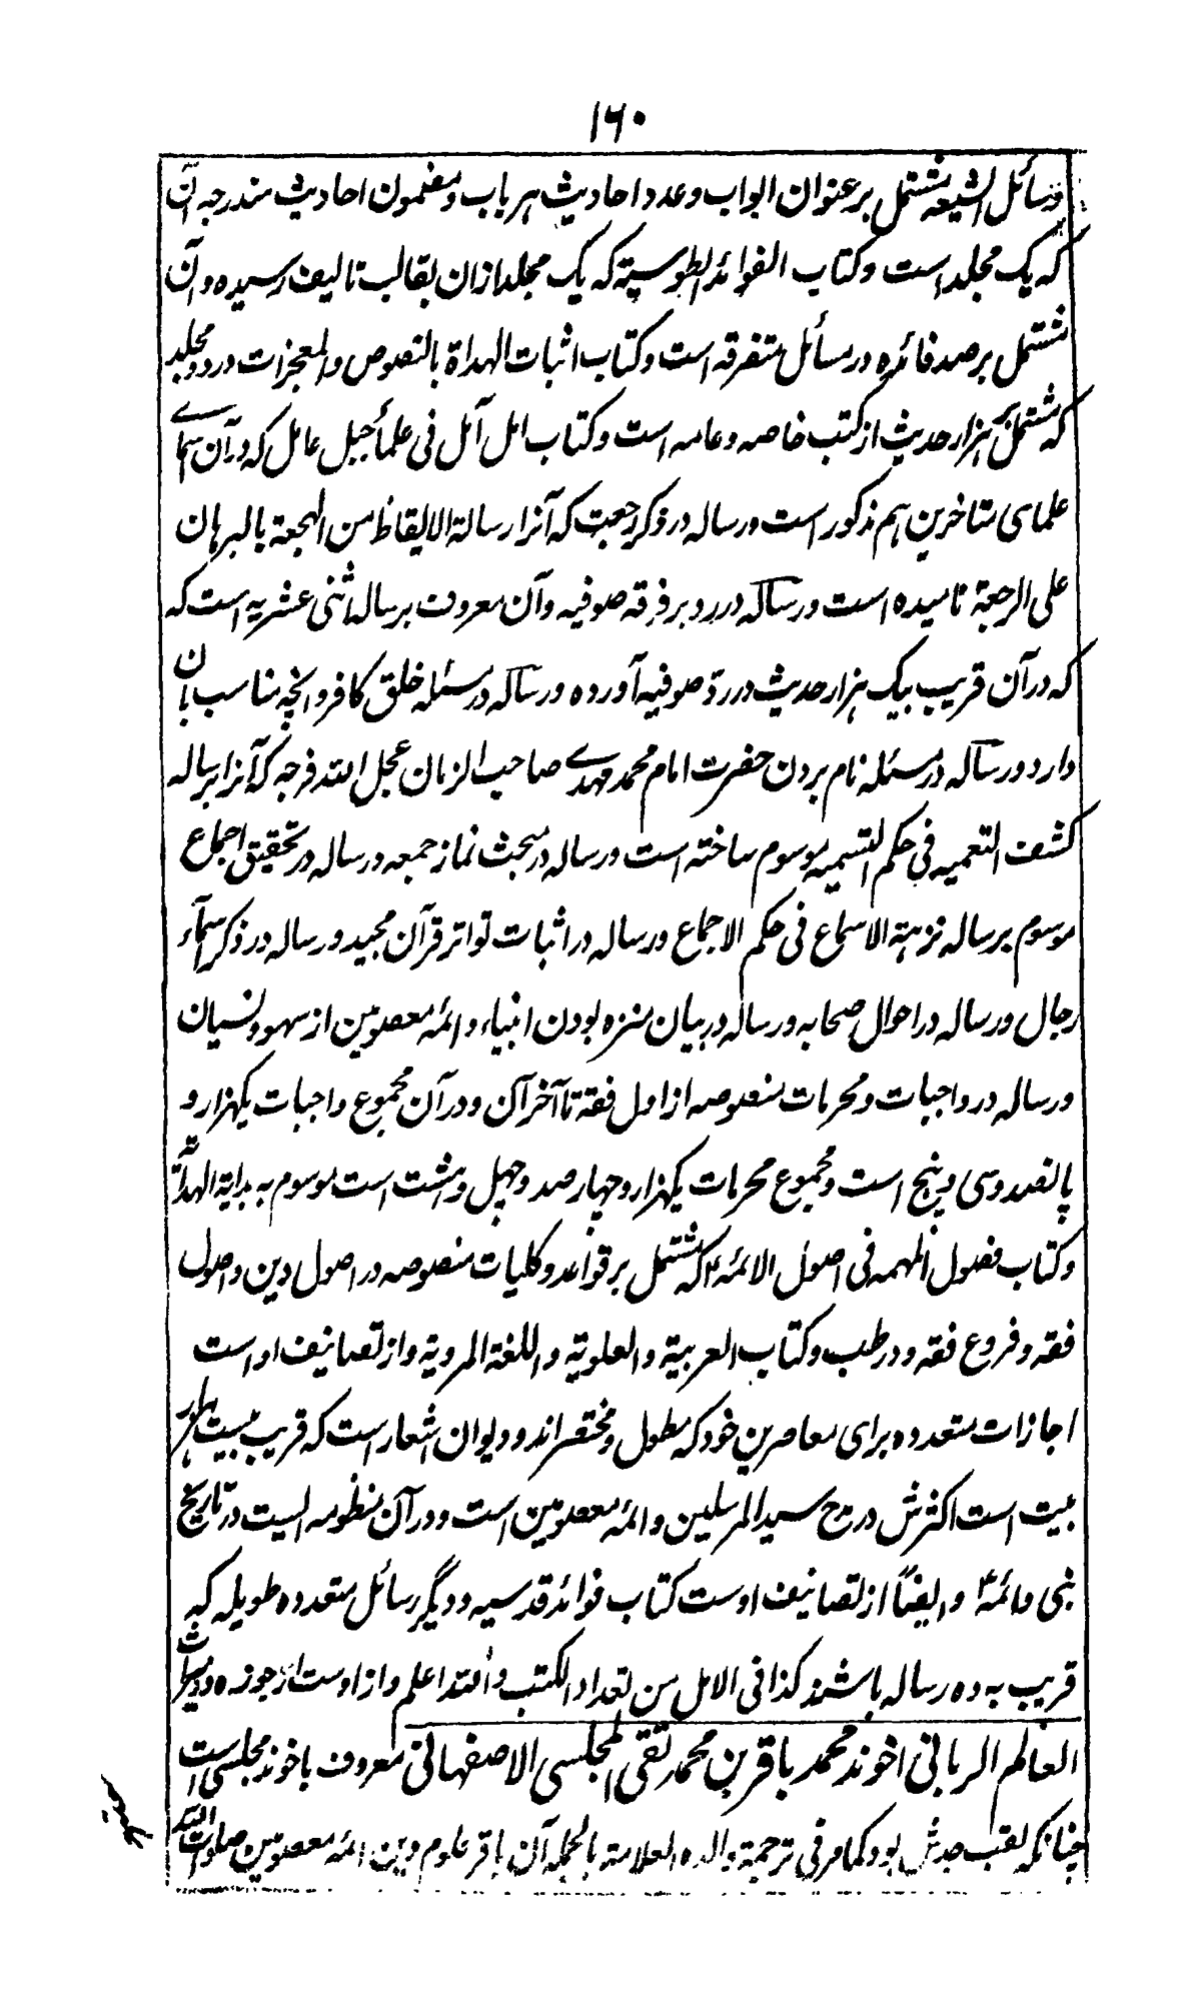 ۱۶۰
وسائل الشیعه مشتمل بر عنوان ابواب و عدد احادیث هر باب و مضمون احادیث مندرجه آن
که یک مجلد است و کتاب الفوائد الطوسیه که یک مجلد ازان بقالب تالیف رسیده و آن
مشتمل بر صد فائده در مسائل متفرقه است و کتاب اثبات الهداة بالنصوص والمعجزات در دو مجلد
که مشتمل بر هزار حدیث از کتب خاصه و عامه است و کتاب امل آمل فی علمأ جبل عامل که در آن اسمای
علمای متاخرین هم مذکور است و رساله در ذکر رجعت که آنرا رسالة الایقاظ من الهجعة بالبرهان
علی الرجعة نامیده است و رساله در رد بر فرقه صوفیه و آن معروف برساله اثنی عشریه است که
که در آن قریب بیک هزار حدیث در ردّ صوفیه آورده و رساله در مسئله خلق کافر و آنچه مناسب بآن
دارد و رساله در مسئله نام بردن حضرت امام محمد مهدی صاحب الزمان عجل الله فرجه که آنرا برساله
کشف التعمیه فی حکم التسمیه موسوم ساخته است و رساله در مبحث نماز جمعه و رساله در تحقیق اجماع
موسوم برساله نزهة الاسماع فی حکم الاجماع و رساله در اثبات تواتر قرآن مجید و رساله در ذکر اسمآء
رجال و رساله در احوال صحابه و رساله در بیان منزه بودن انبیاء و ائمه معصومین از سهو و نسیان
و رساله در واجبات و محرمات منصوصه از اول فقه تا آخر آن و در آن مجموع واجبات یکهزار و
پانصد و سی و پنج است و مجموع محرمات یکهزار و چهار صد و چهل و هشت است موسوم به بدایة الهدایة
و کتاب فصول المهمه فی اصول الائمه ۴ که مشتمل بر قواعد و کلیات منصوصه در اصول دین و اصول
فقه و فروع فقه و در طب و کتاب العربیة والعلویة واللغة المرویة و از تصانیف او است
اجازات متعدده برای معاصرین خود که مطول و مختصر اند و دیوان اشعار است که قریب بیست هزار
بیت است اکثرش در مدح سید المرسلین و ائمه معصومین است و در آن منظومه ایست در تاریخ
نبی و ائمه ۴ و ایضاً از تصانیف اوست کتاب فوائد قدسیه و دیگر رسائل متعدده طویله که
قریب به ده رساله باشند کذا فی الامل من تعداد الکتب والله اعلم و از اوست ارجوزه در میراث
العالم الربانی اخوند محمد باقر بن محمد تقی المجلسی الاصفهانی معروف باخوند مجلسی است
چنانکه لقب جدش بود کما مر فی ترجمة والده العلامة بالجمله آن باقر علوم دین ائمه معصومین صلوات الله